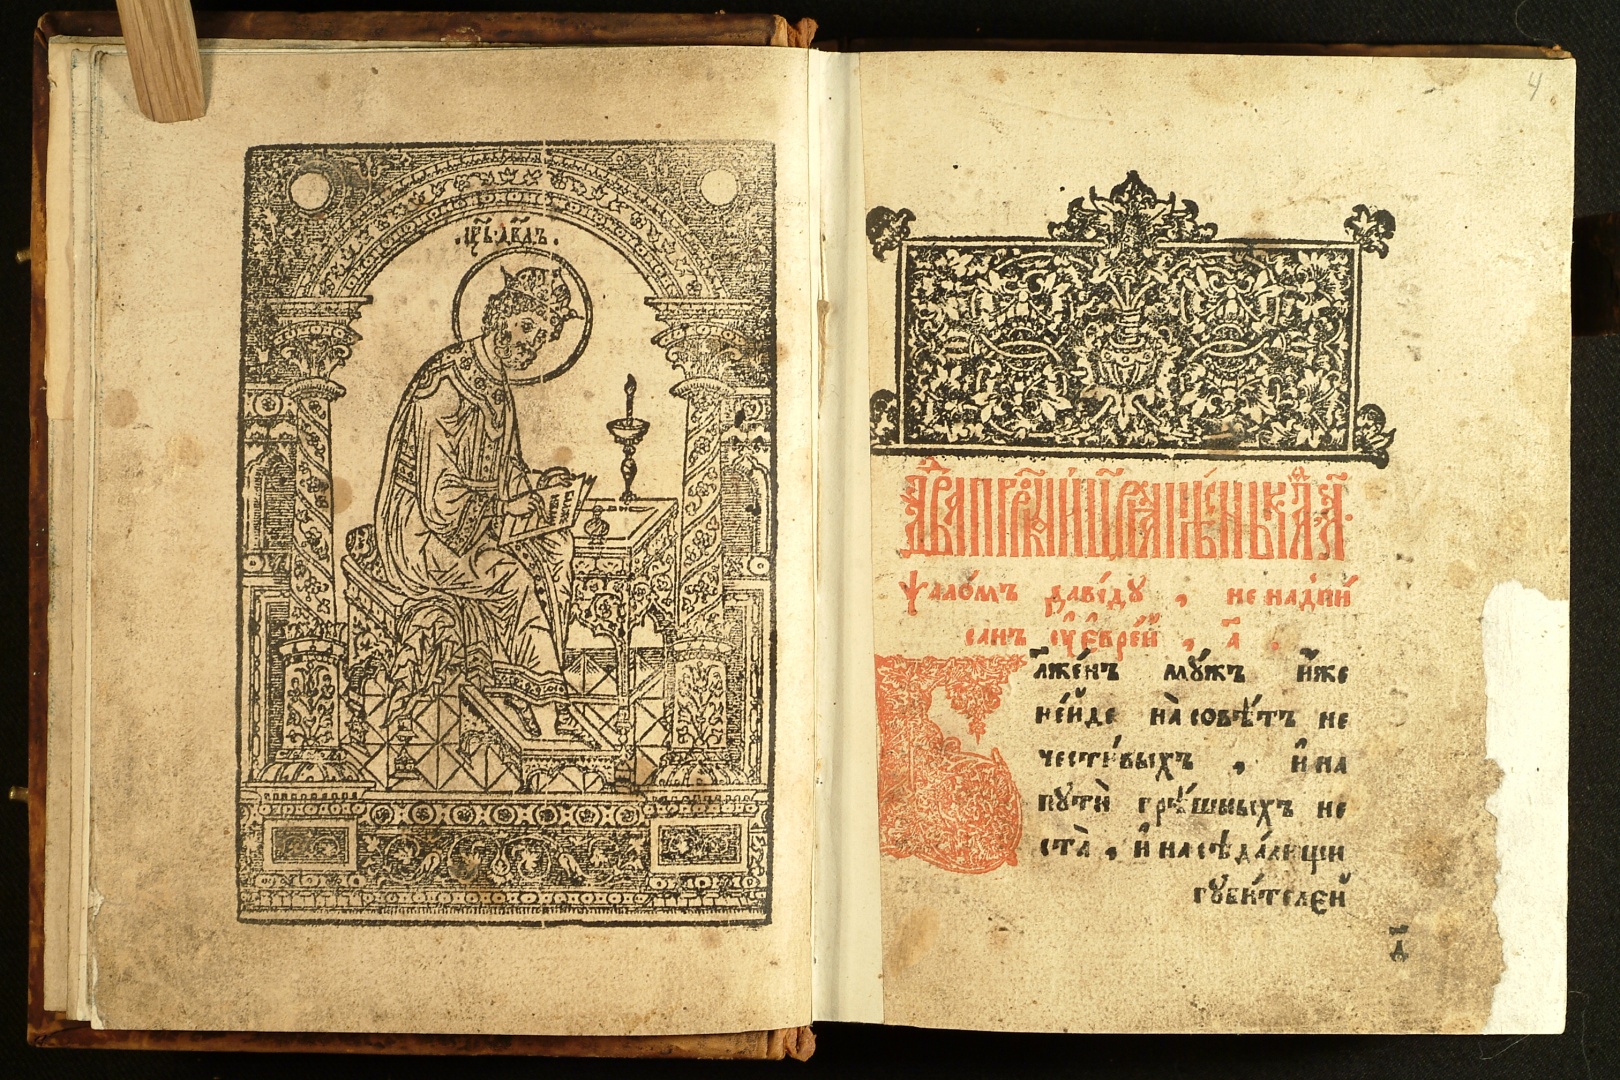 .ЦР҃Ь.ДВДЪ.
4
ѱало́мъ даві́ду , не надпи́
санъ ѹ҆ є҆врє́й , а҃ .
Бл҃же́нъ мѹ́жъ и҆́же
не и́де на̀ совѣ́тъ не
чести́выхъ , и҆ на
пѹтѝ грѣ́шныхъ не
ста̀ , и҆ на сѣда́лищи
гѹби́телей
а҃